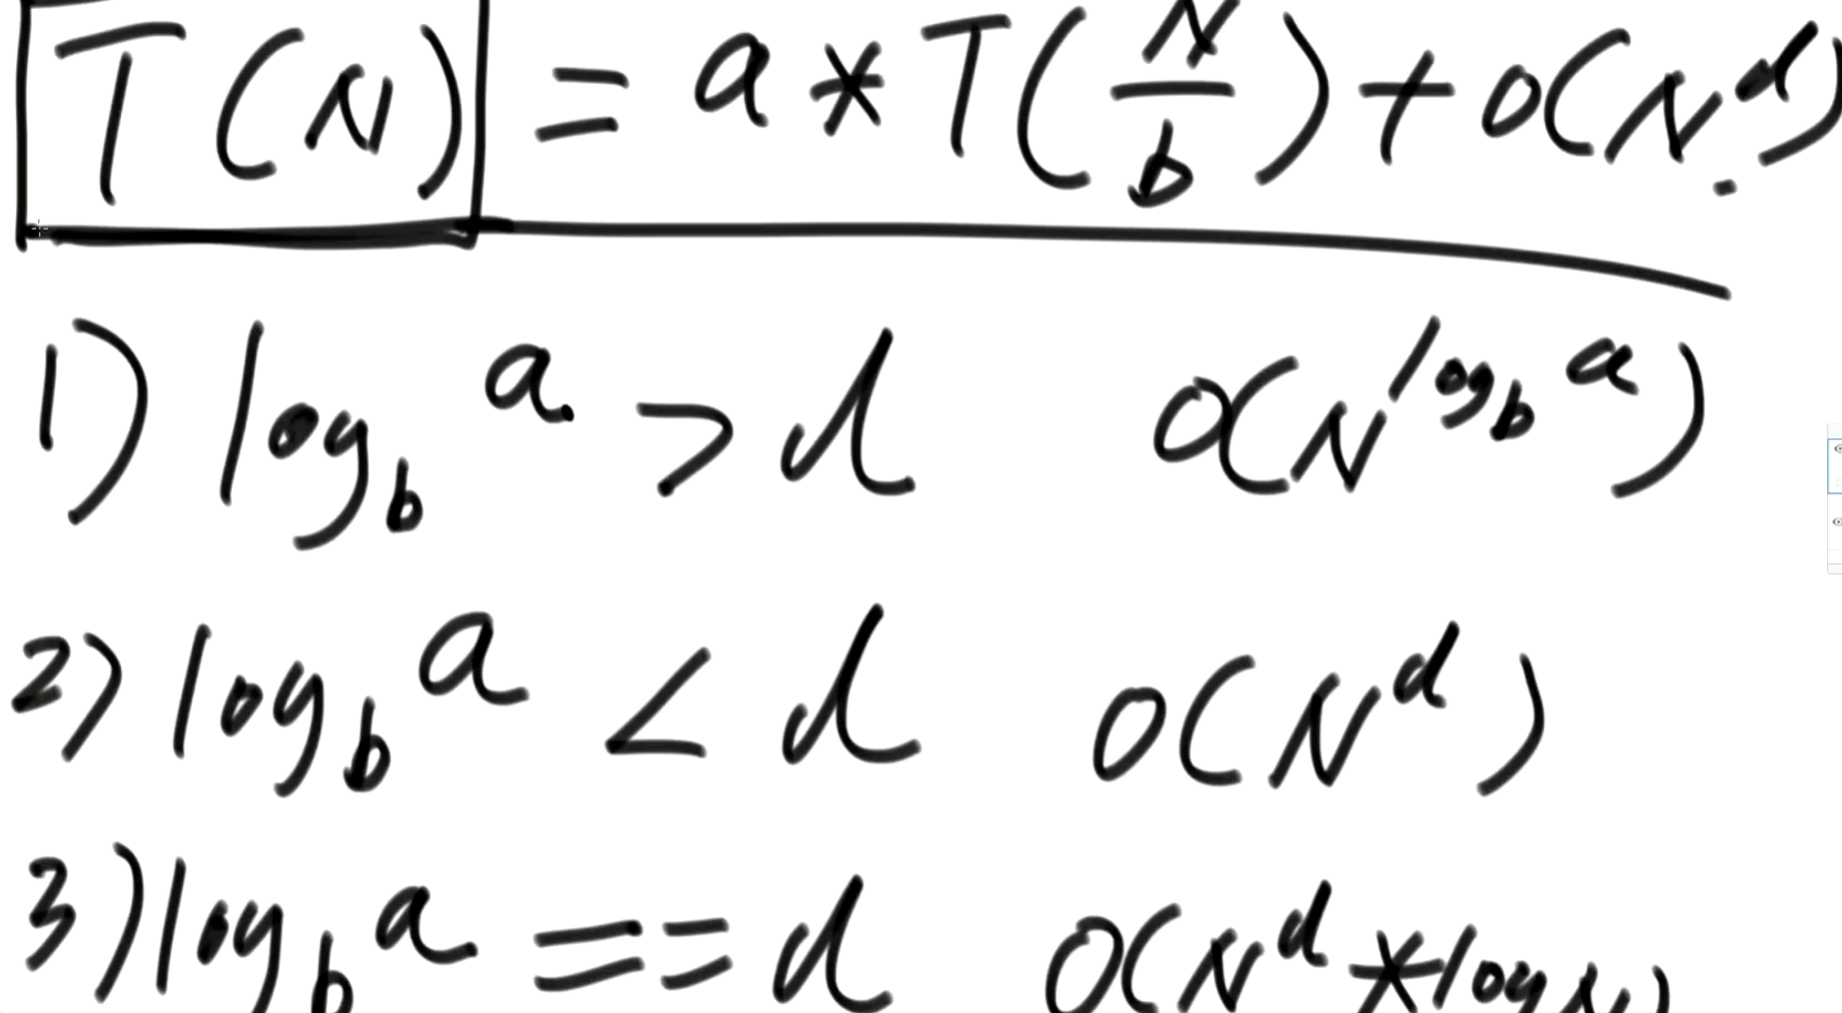 T(N) = a * T(N/b) + O(N^d)
1) log_b a > d O(N^log_b a)
2) log_b a < d O(N^d)
3) log_b a == d O(N^d * log N)